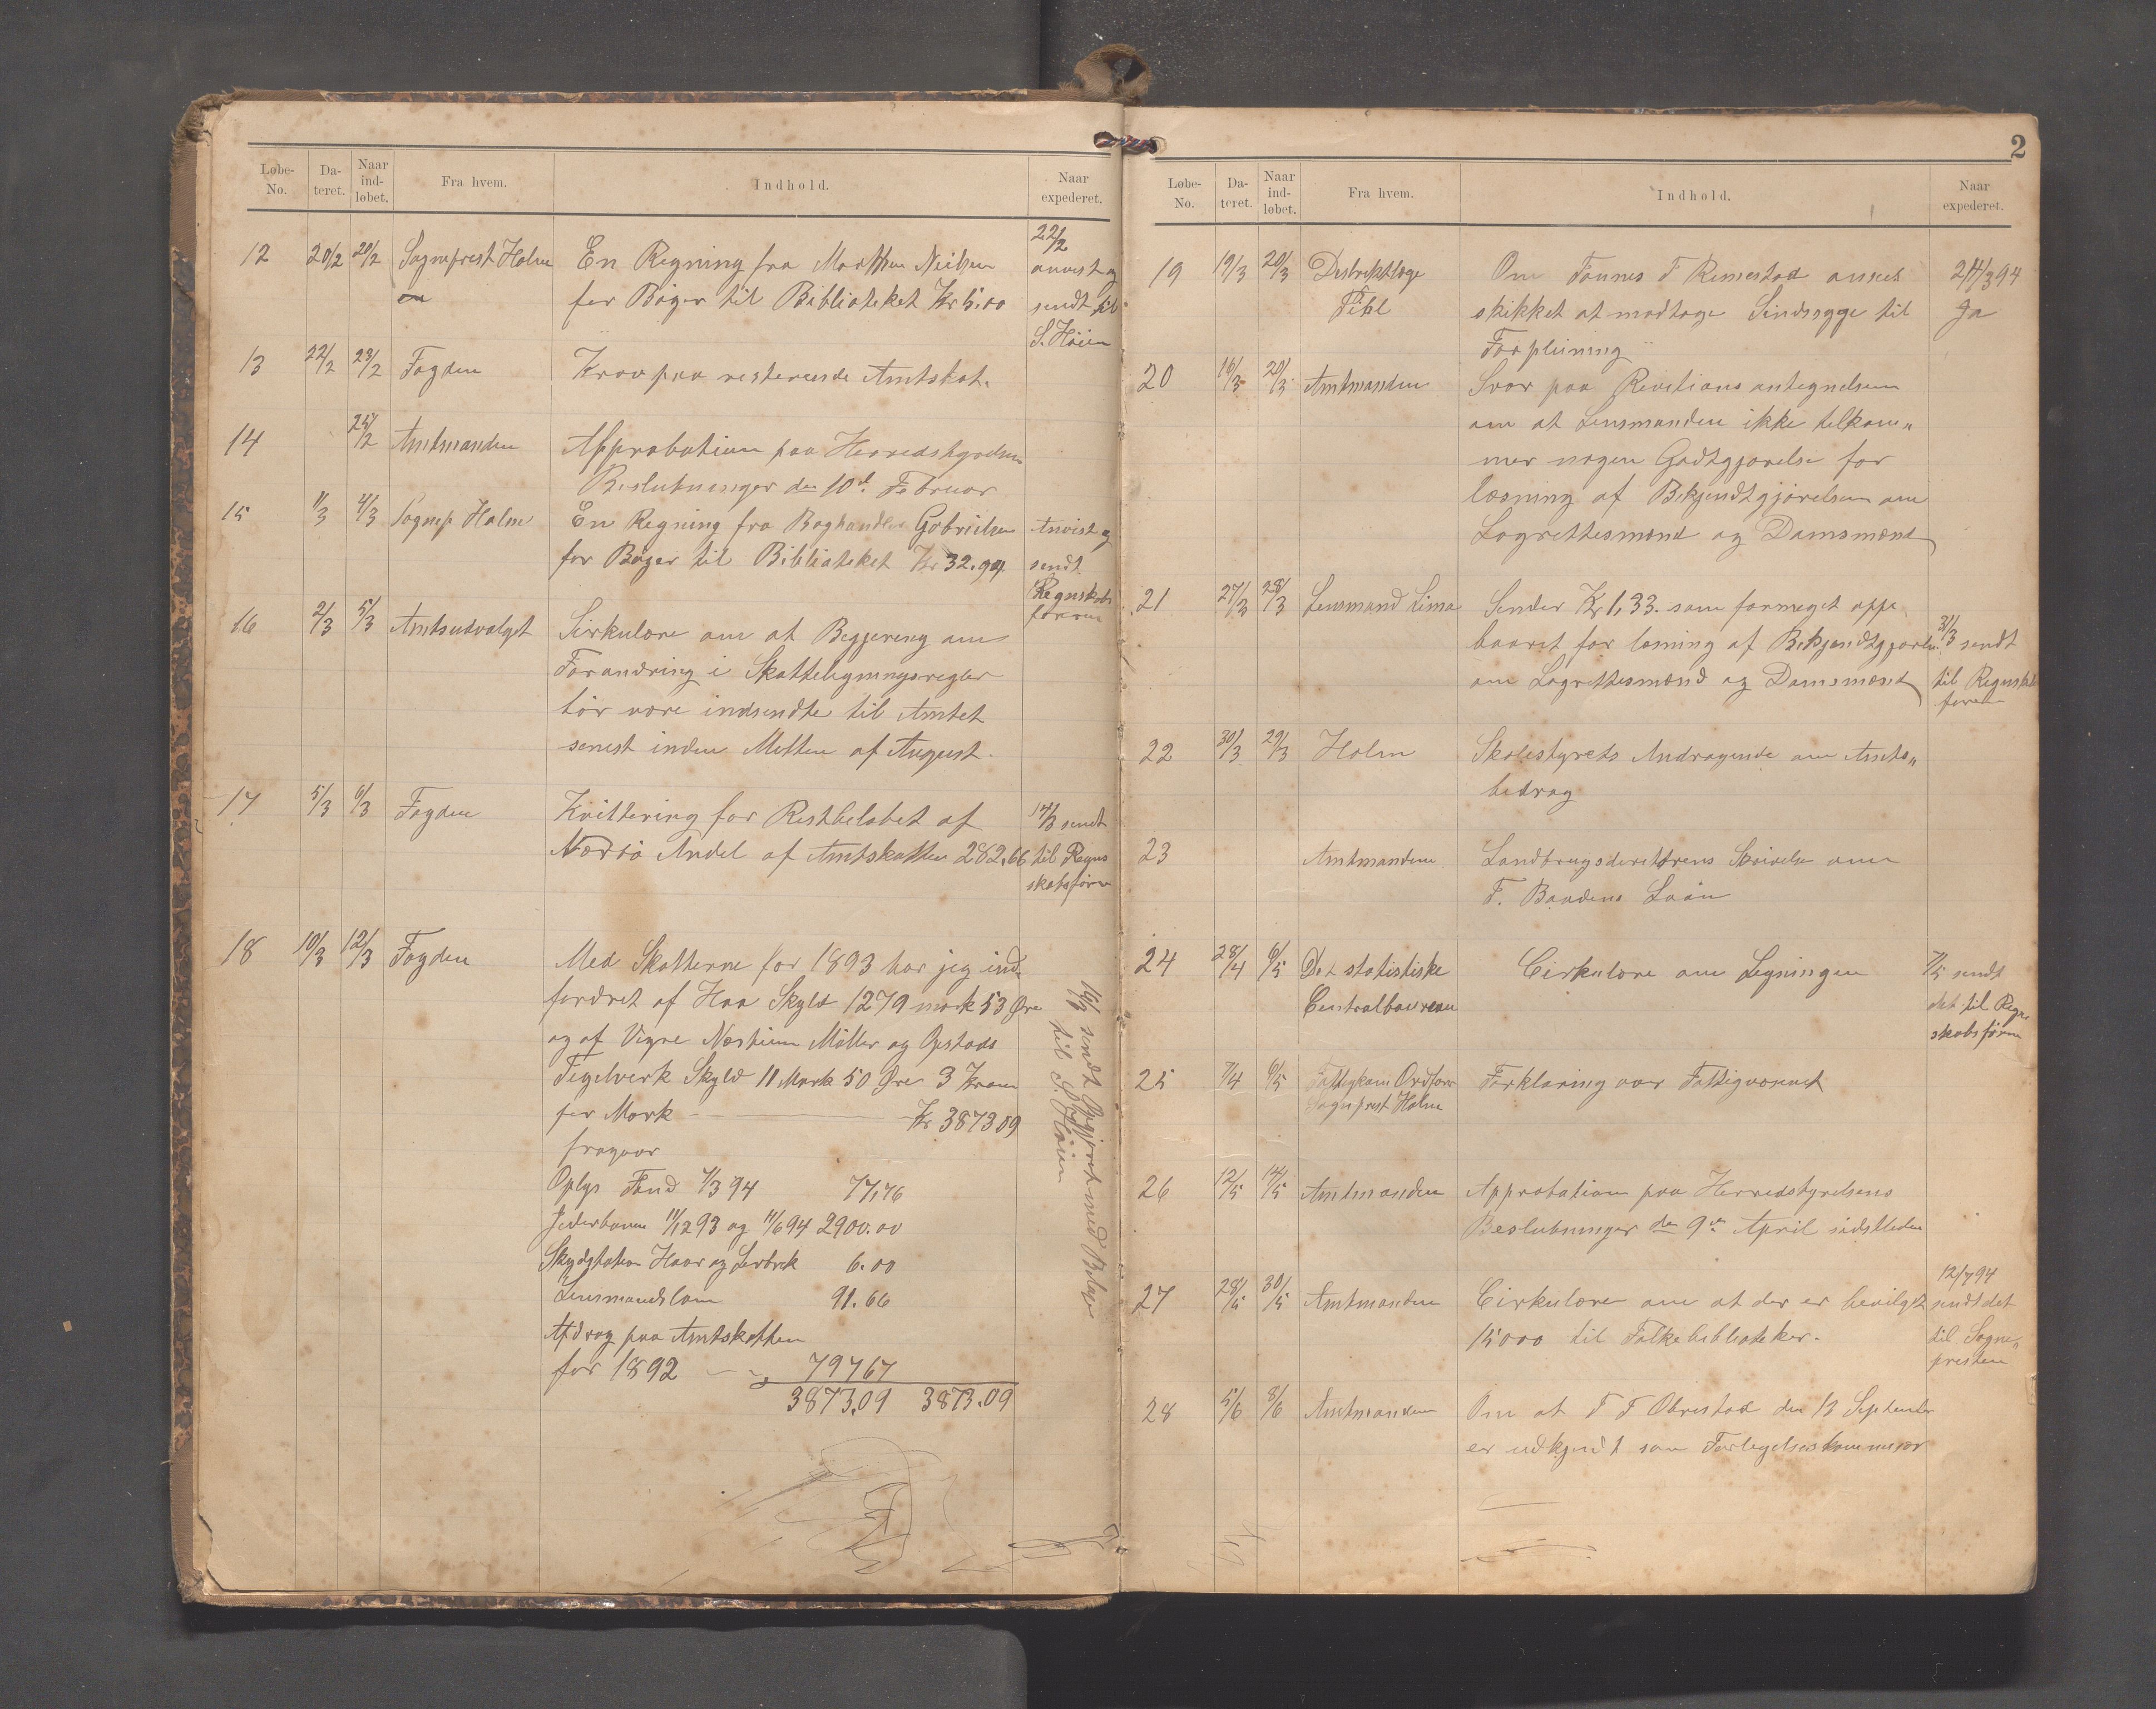 Løbe-No. Da-teret. Naar ind-løbet. Fra hvem. Indhold. Naar expederet.
12 20/2 20/2 Sogneprest Holm En Regning fra Marthin Nielsen 22/2 anvist og
for Bøger til Biblioteket Kr 5.00 sendt til
S. Höien
13 22/2 23/2 Fogden Krav paa resterende Amtskat.
14 25/2 Amtmanden Approbation paa Herredstyrelsens
Beslutninger den 10d. Februar
15 1/3 4/3 Sognep Holm En Regning fra Boghandler Gabrielsen Anvist og
for Bøger til Biblioteket Kr 32.94 sendt
Regnskabs
føreren
16 2/3 5/3 Amtsudvalget Sirkulære om at Begjæring om
Forandring i Skatteligningsregler
bör være indsendte til Amtet
senest inden Midten af August.
17 5/3 6/3 Fogden Kvittering for Restbeløbet af 14/3 sendt
Nærbö Andel af Amtskatten 282.66 til Regns
skabsføre
18 10/3 12/3 Fogden Med Skatterne for 1893 har jeg ind-
fordret af Haa Skyld 1279 mark 53 Øre
og af Vigre Næsheim Møller og Opstads
Tegelverk Skyld 11 Mark 50 Øre 3 Kroner
per Mark Kr 3873 09
fragaar
Oplys Fond 7/3 94 77,76
Jederbanen 11/12 93 og 11/6 94 2900.00
Skydsstation Haar og Lerbrek 6.00
Lensmandsløn 91.66
Afdrag paa Amtskatten
for 1892 797 67
3873.09 3873.09
sendt Opgjøret med Bilag
til S. Höien
2
Løbe-No. Da-teret. Naar ind-løbet. Fra hvem. Indhold. Naar expederet.
19 19/3 20/3 Distriktlæge Om Tønnes T Rimestad ansees 24/3 94
skikket at modtage Sindssyge til Ja
Forpleining
20 16/3 20/3 Amtmanden Svar paa Revitions antegnelsen
om at Lensmanden ikke tilkom„
mer nogen Godtgjørelse for
læsning af Bekjendtgjørelsen om
Lagrettesmænd og Domsmænd
21 27/3 28/3 Lensmand Lima Sender Kr 1,33. som formeget oppe
baaret for læsning af Bekjendtgjørlse 31/3 sendt
om Lagrettesmænd og Domsmænd til Regnskabs
fører
22 30/3 29/3 Holm Skolestyrets Andragende om Amts„
bidrag
23 Amtmanden Landbrugsdirektørens Skrivelse om
T. Baadens Laan
24 28/4 6/5 Det statistiske Cirkulære om Ligningen 7/5 sendt
Centralbaureau det til Regn
skabsføren
25 7/4 6/5 Fattigkom Ordfører Forklaring over Fattigvæsenet
Sogneprest Holm
26 12/5 14/5 Amtmanden Approbation paa Herredstyrelsens
Beslutninger den 9de April sidstleden
27 28/5 30/5 Amtmanden Cirkulære om at der er bevilget 12/7 94 sendt det
15000 til Folkebiblioteker. til Sogne„
presten
28 5/6 8/6 Amtmanden Om at T T Obrestad den 13 September
er udkjendt som Forligelseskommisær